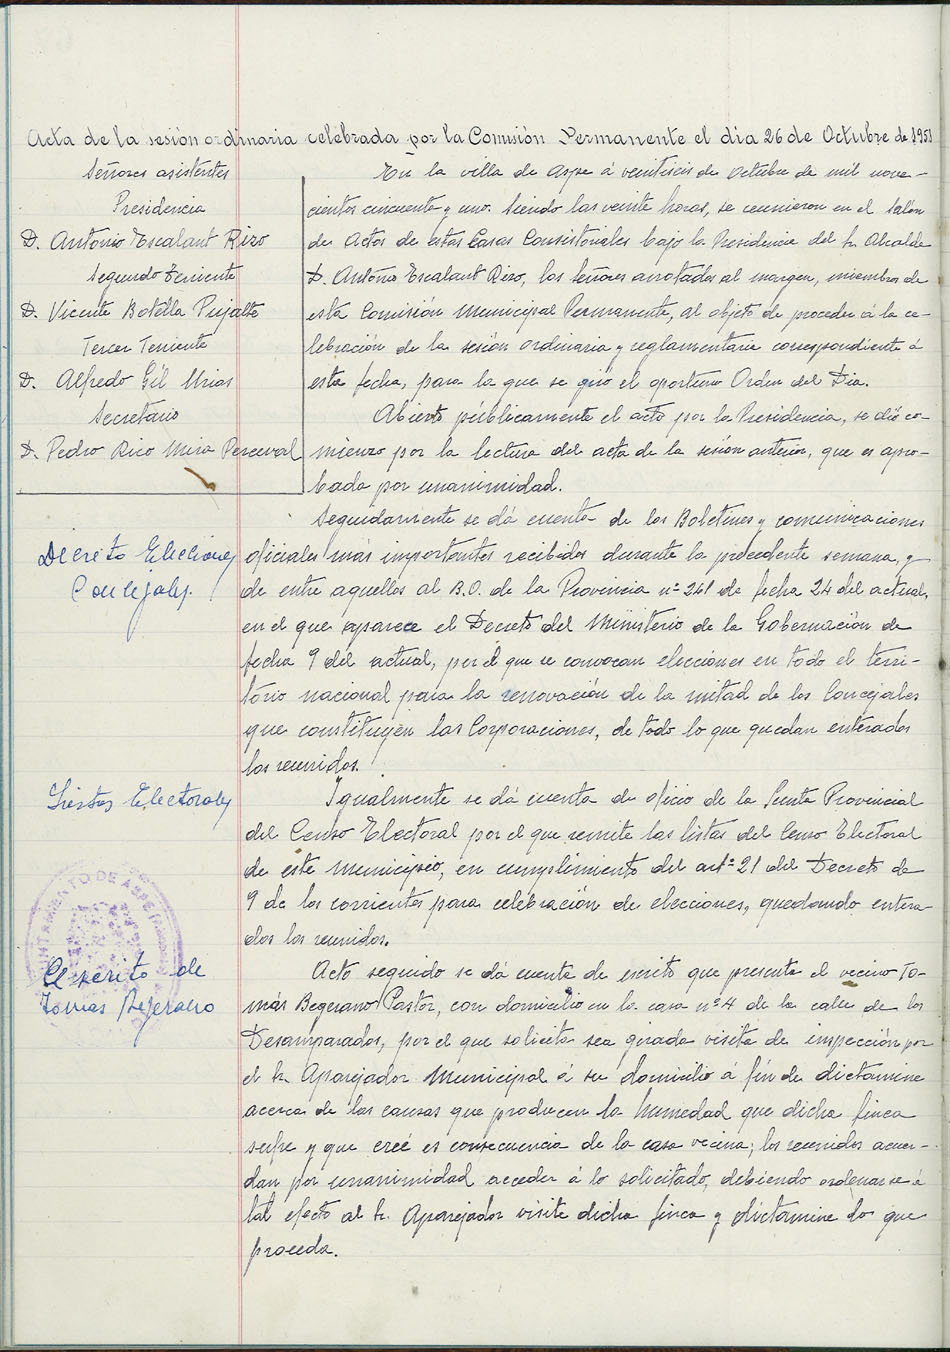 Acta de la sesión ordinaria celebrada por la Comisión Permanente el día 26 de Octubre de 1951
Señores asistentes
Presidencia
D. Antonio Escalant Rizo
Segundo Teniente
D. Vicente Botella Pujalte
Tercer Teniente
D. Alfredo Gil Urios
Secretario
D. Pedro Rico Mira Perceval
En la villa de Aspe á veintiseis de Octubre de mil nove-
cientos cincuenta y uno. Siendo las veinte horas, se reunieron en el Salón
de Actos de estas Casas Consistoriales bajo la Presidencia del Sr. Alcalde
D. Antonio Escalant Rizo, los señores anotados al margen, miembros de
esta Comisión Municipal Permanente, al objeto de proceder á la ce-
lebración de la sesión ordinaria y reglamentaria correspondiente á
esta fecha, para la que se giró el oportuno Orden del Dia.
Abierto públicamente el acto por la Presidencia, se dió co-
mienzo por la lectura del acta de la sesión anterior, que es apro-
bada por unanimidad.
Decreto Elecciones
Concejales.
Seguidamente se dá cuenta de los Boletines y comunicaciones
oficiales más importantes recibidos durante la precedente semana, y
de entre aquellos al B.O. de la Provincia nº 241 de fecha 24 del actual,
en el que aparece el Decreto del Ministerio de la Gobernación de
fecha 9 del actual, por el que se convocan elecciones en todo el terri-
torio nacional para la renovación de la mitad de los Concejales
que constituyen las Corporaciones, de todo lo que quedan enterados
los reunidos.
Listas Electorales
Igualmente se dá cuenta de oficio de la Junta Provincial
del Censo Electoral por el que remite las listas del Censo Electoral
de este Municipio, en cumplimiento del artº 21 del Decreto de
9 de los corrientes para celebración de elecciones, quedando entera-
dos los reunidos.
AYUNTAMIENTO DE ASPE
Escrito de
Tomas Bejerano
Acto seguido se dá cuenta de escrito que presenta el vecino To-
más Begerano Pastor, con domicilio en la casa nº 4 de la calle de los
Desamparados, por el que solicita sea girada visita de inspección por
el Sr. Aparejador Municipal á su domicilio á fin de dictamine
acerca de las causas que producen la humedad que dicha finca
sufre y que creé es consecuencia de la casa vecina; los reunidos acuer-
dan por unanimidad acceder á lo solicitado, debiendo ordenarse á
tal efecto al Sr. Aparejador visite dicha finca y dictamine lo que
proceda.